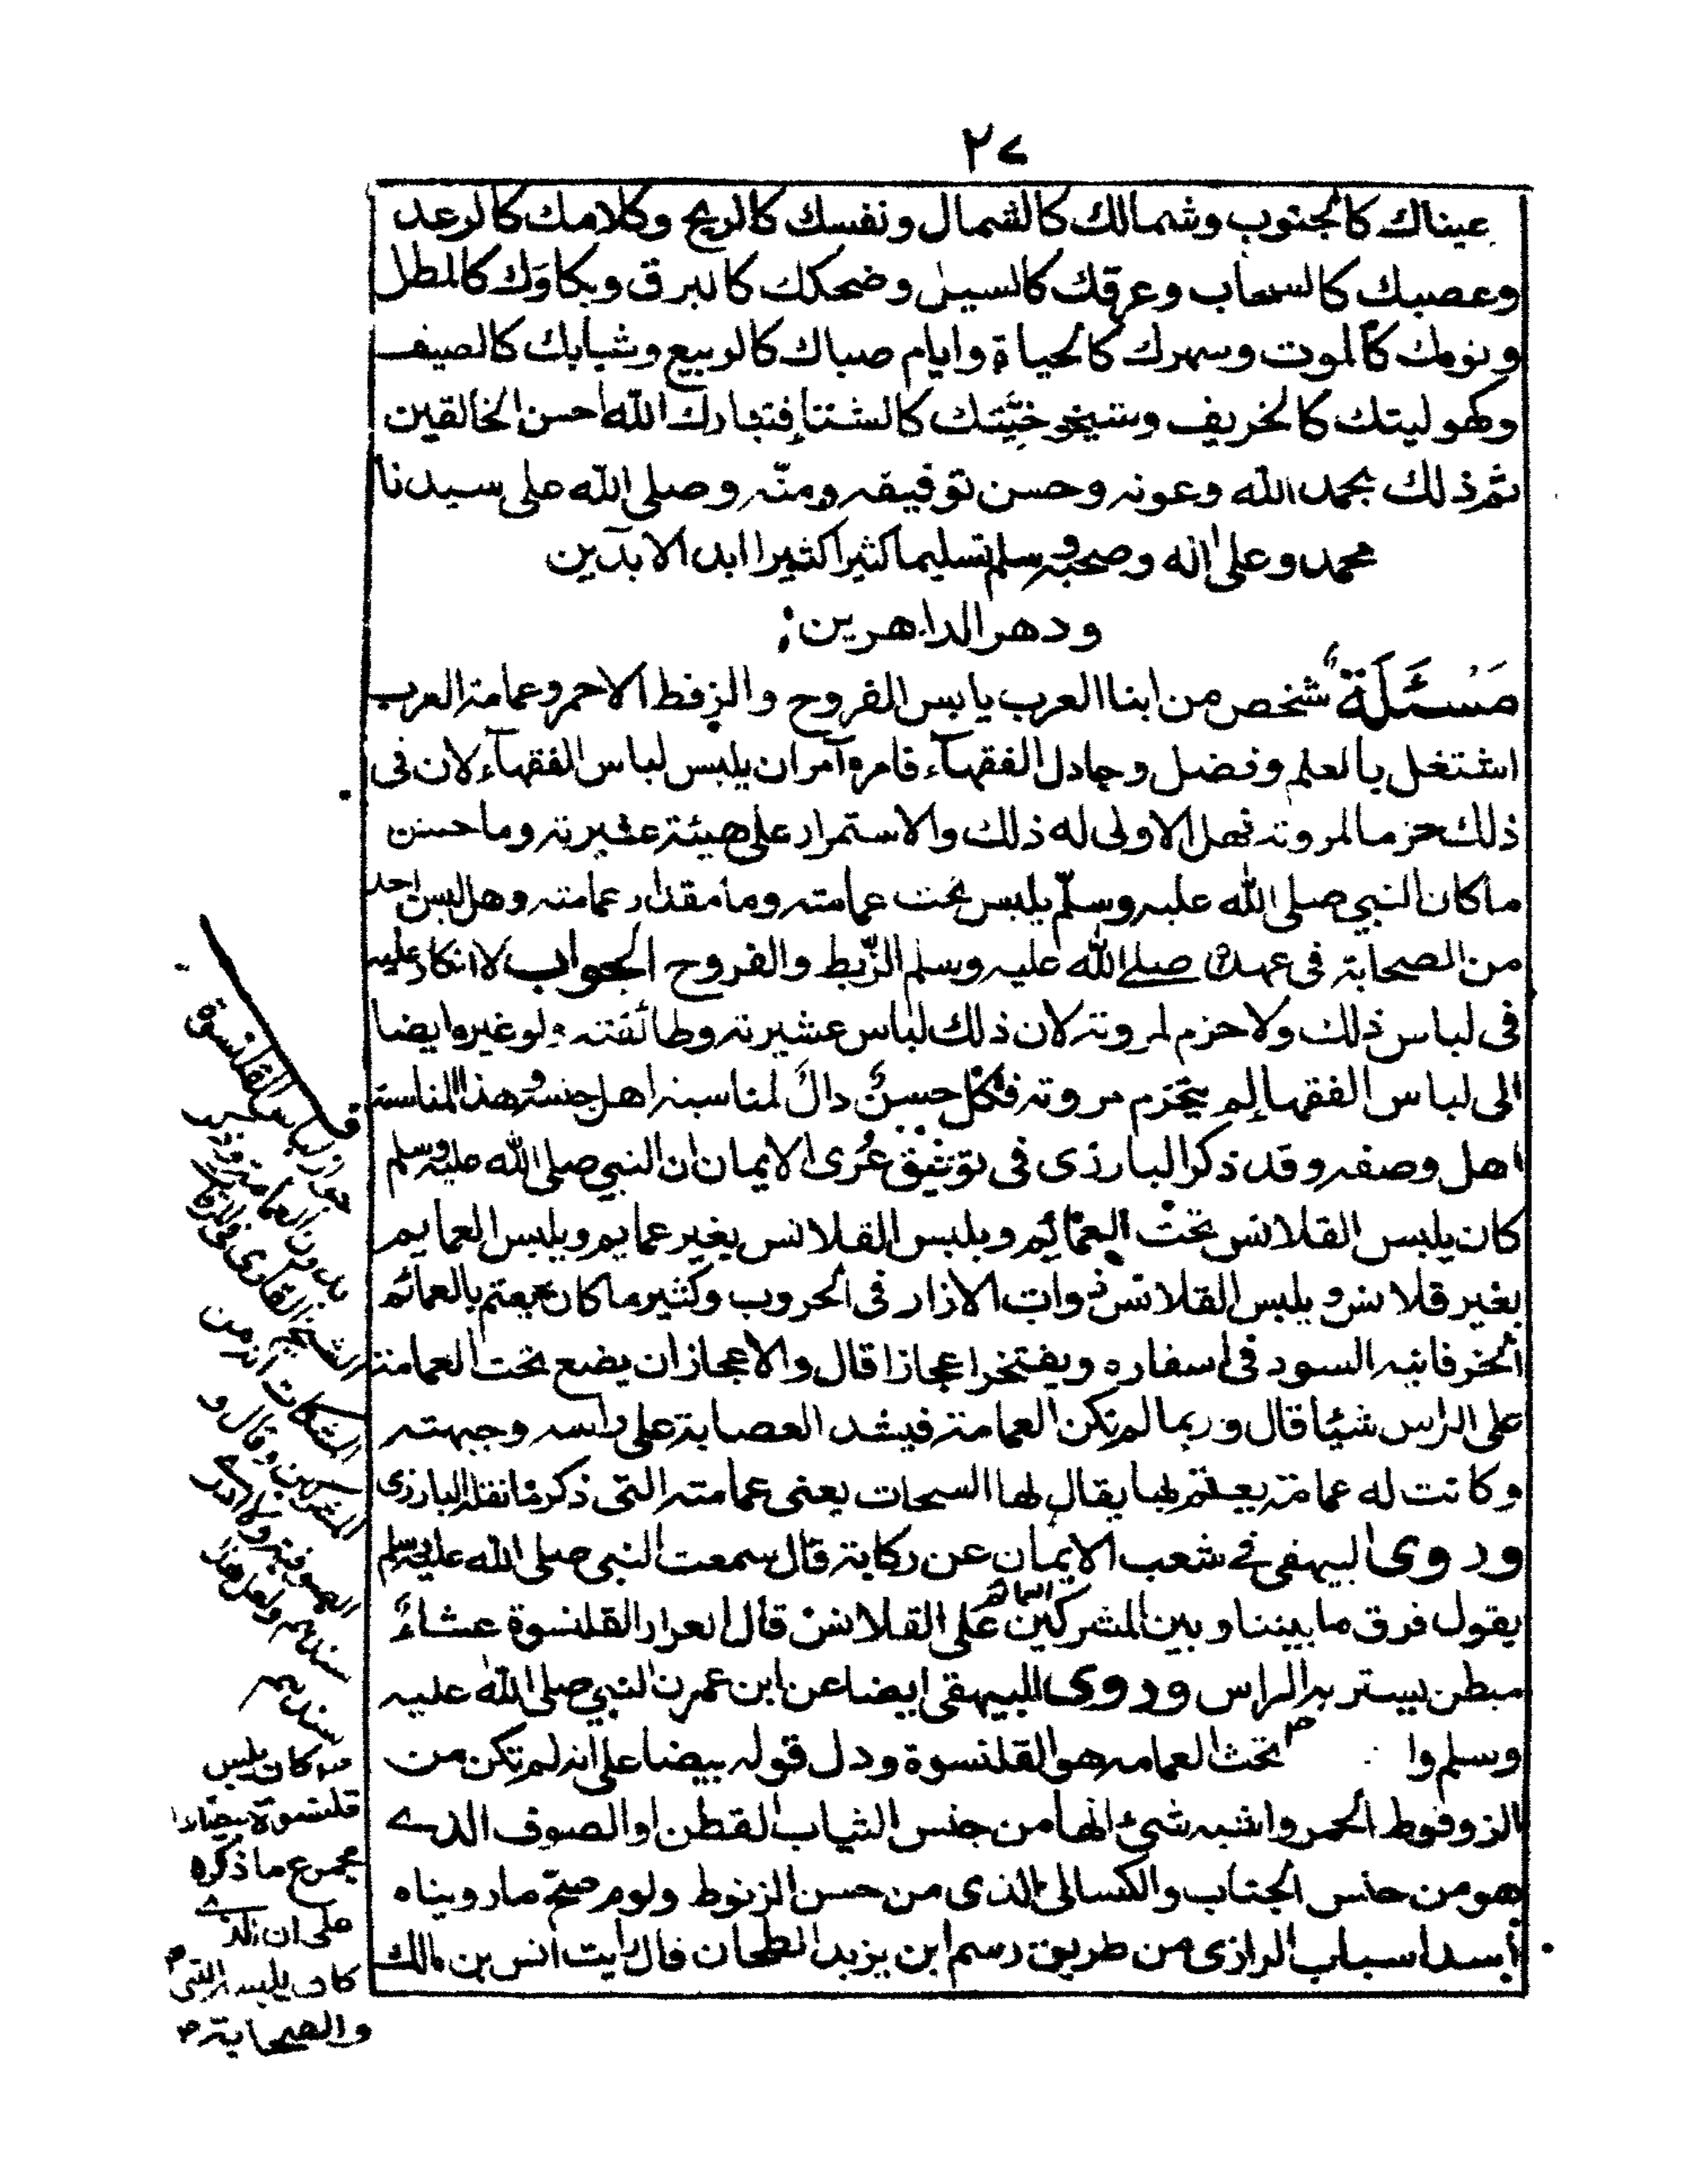 ٢٧
عيناك كالجنوب وشمالك كالشمال ونفسك كالريح وكلامك كالرعد
وعصبك كالسحاب وعرقك كالسيل وضحكك كالبرق وبكاؤك كالمطل
ونومك كالموت وسهرك كالحياة وايام صباك كالربيع وشبابك كالصيف
وكهوليتك كالخريف وشيخوختيّتك كالشتا فتبارك الله احسن الخالقين
تم ذلك بحمد الله وعونه وحسن توفيقه ومنّه وصلى الله على سيدنا
محمد وعلى اله وصحبه وسلم تسليما كثيرا كثيرا ابد الابدين
ودهر الداهرين
مَسْئَلَة شخص من ابنا العرب يا بس الفروح والزفط الاحمر وعمامة العرب
اشتغل بالعلم وفضل وجادل الفقهآء فامره آمر ان يلبس لباس الفقهآء لان فى
ذلك حزما لمروته فهل الاولى له ذلك والاستمرار على هيئة عشيرته وما حسن
ما كان النبي صلى الله عليه وسلّم يلبس تحت عمامته وما مقدار عمامته وهل لبس احد
من الصحابة فى عهده صلے الله عليه وسلم الزّبط والفروح الجواب لا انكار عليه
فى لباس ذلك ولا حزم لمروته لان ذلك لباس عشيرته وطائفته ولو غير وايضا
الى لباس الفقها لم يتحزم مروته فكل حسن داك لمناسبة اهل جنسه وهذا المناسبة
اهل وصفه وقد ذكر البارزى فى توثيق عُرى الايمان ان النبي صلى الله عليه وسلم
كان يلبس القلانس تحت العمائم ويلبس القلانس بغير عمايم ويلبس العمايم
بغير قلانس ويلبس القلانس ذوات الازار فى الحروب وكثير ما كان يعتم بالعمائم
الخرفانيه السود فى اسفاره ويفتخر اعجازا قال والاعجاز ان يضع تحت العمامة
على الراس شيئا قال وربما لم تكن العمامة فيشد العصابة على راسه وجبهته
وكانت له عمامة يعتم بها يقال لها السحات يعنى عمامته التى ذكر ما نقله البارزى
وروى البيهقى فے شعب الايمان عن ركابة قال سمعت النبى صلى الله عليه وسلم
يقول فرق ما بيننا وبين المشركين العمائم على القلانس قال العرار القلنسوة عشاء
مبطن يستر به الراس وروى البيهقى ايضا عن ابن عمر ن النبي صلى الله عليه
وسلم وا تحت العمامه هو القلنسوة ودل قوله بيضا على انه لم تكن من
الزوفوط الحمر واشبه شئ انها من جنس الثياب القطن او الصوف الدے
هو من جنس الجناب والكسالى الذى من حسن الزنوط ولوم صح ما رويناه
أبسد اسباب الرازى من طريق رسم ابن يزيد الطحان قال رايت انس بن مالك
القلنسوة
بدون العمامة
الشيخ القارى
كان يلبس
قلنسوة بيضاء
مجمرع ما ذكره
على ان الذے
كان يلبسه النبى
والصحابة